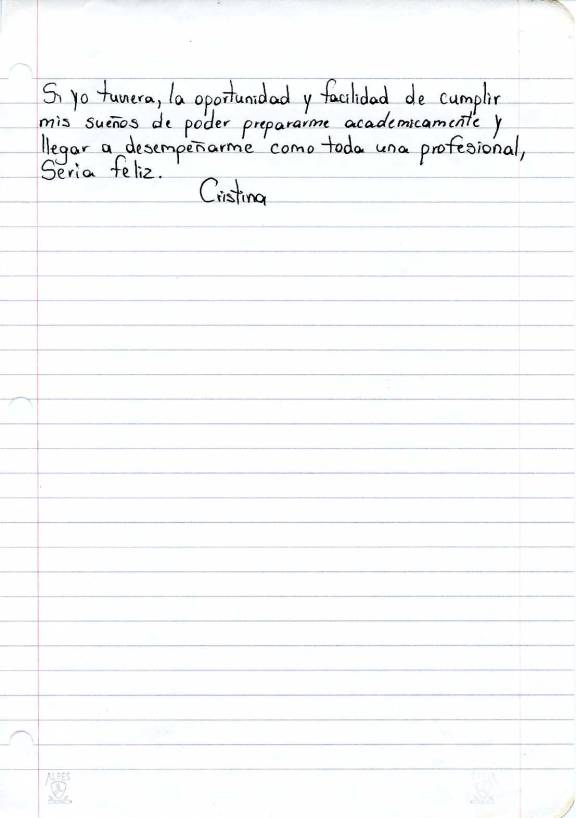 Si yo tuviera, la oportunidad y facilidad de cumplir
mis sueños de poder prepararme academicamente y
llegar a desempeñarme como toda una profesional,
Seria feliz.
Cristina
ALEES